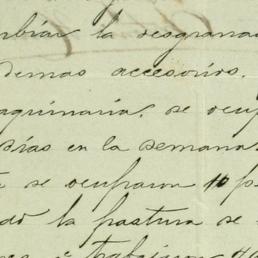 mbiar la desgranad
demas accesorios.
aquinaria, se ocup
dias en la semana
se ocuparon 10 p
do la pastura se
trabajaron